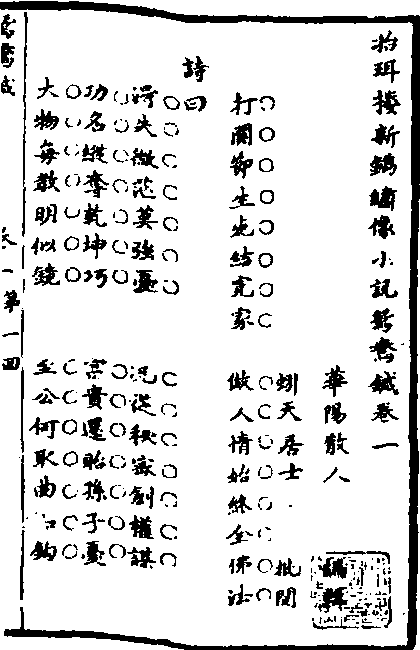 拾珥樓新鐫繡像小說鴛鴦鍼卷一
華陽散人 編輯
蚓天居士 批閱
打關節生死結冤家 做人情始終全佛法
詩曰
得失微茫莫強憂 況從秘密創權謀
功名縱奪乾坤巧 富貴還貽孫子憂
大物每教明似鏡 至公何取曲如鉤
鴛鴦鍼 卷一第一回